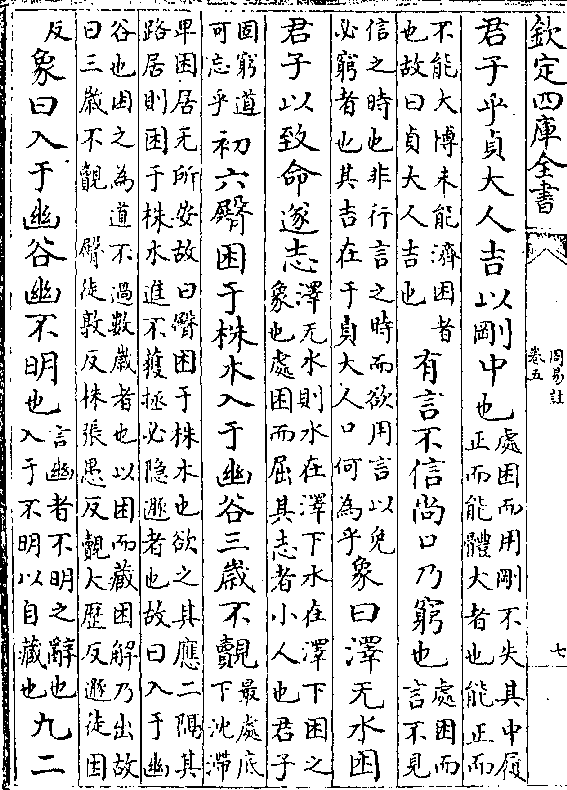 欽定四庫全書
周易註
卷五
七
君子乎貞大人吉以剛中也
處困而用剛不失其中履
正而能體大者也能正而
不能大博未能濟困者
也故曰貞大人吉也
有言不信尚口乃窮也
處困而
言不見
信之時也非行言之時而欲用言以免
必窮者也其吉在于貞大人口何為乎
象曰澤无水困
君子以致命遂志
澤无水則水在澤下水在澤下困之
象也處困而屈其志者小人也君子
固窮道
可忘乎
初六臀困于株木入于幽谷三歲不覿
最處底
下沈滯
卑困居无所安故曰臀困于株木也欲之其應二隔其
路居則困于株木進不獲拯必隐遯者也故曰入于幽
谷也困之為道不過數歲者也以困而藏困解乃出故
曰三歲不覿 臀徒敦反株張愚反覿大歷反遯徒困
反
象曰入于幽谷幽不明也
言幽者不明之辭也
入于不明以自藏也
九二